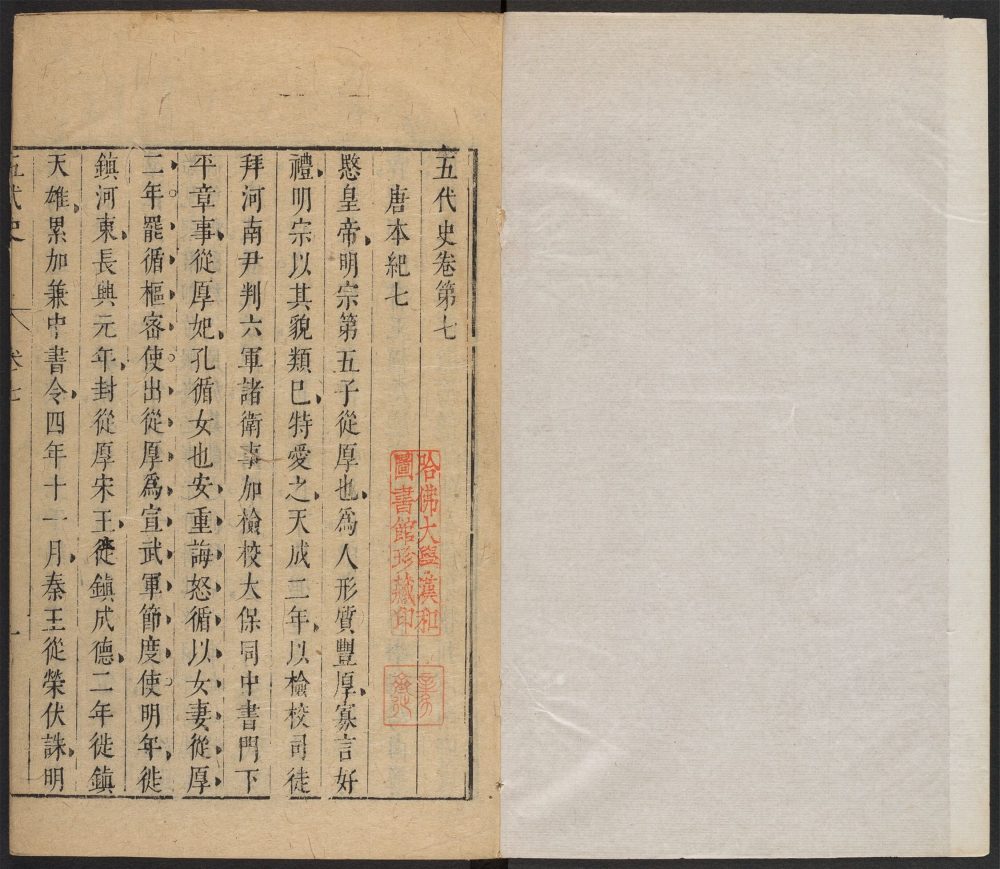 五代史卷第七
唐本紀七
愍皇帝明宗第五子從厚也爲人形質豐厚寡言好
禮明宗以其貌類已特愛之天成二年以檢校司徒
拜河南尹判六軍諸衛事加檢校太保同中書門下
平章事從厚妃孔循女也安重誨怒循以女妻從厚
二年罷循樞密使出從厚爲宣武軍節度使明年徙
鎮河東長興元年封從厚宋王徙鎮成德二年徙鎮
天雄累加兼中書令四年十一月秦王從榮伏誅明
五代史
卷七
一
哈佛大學漢和
圖書館珍藏印